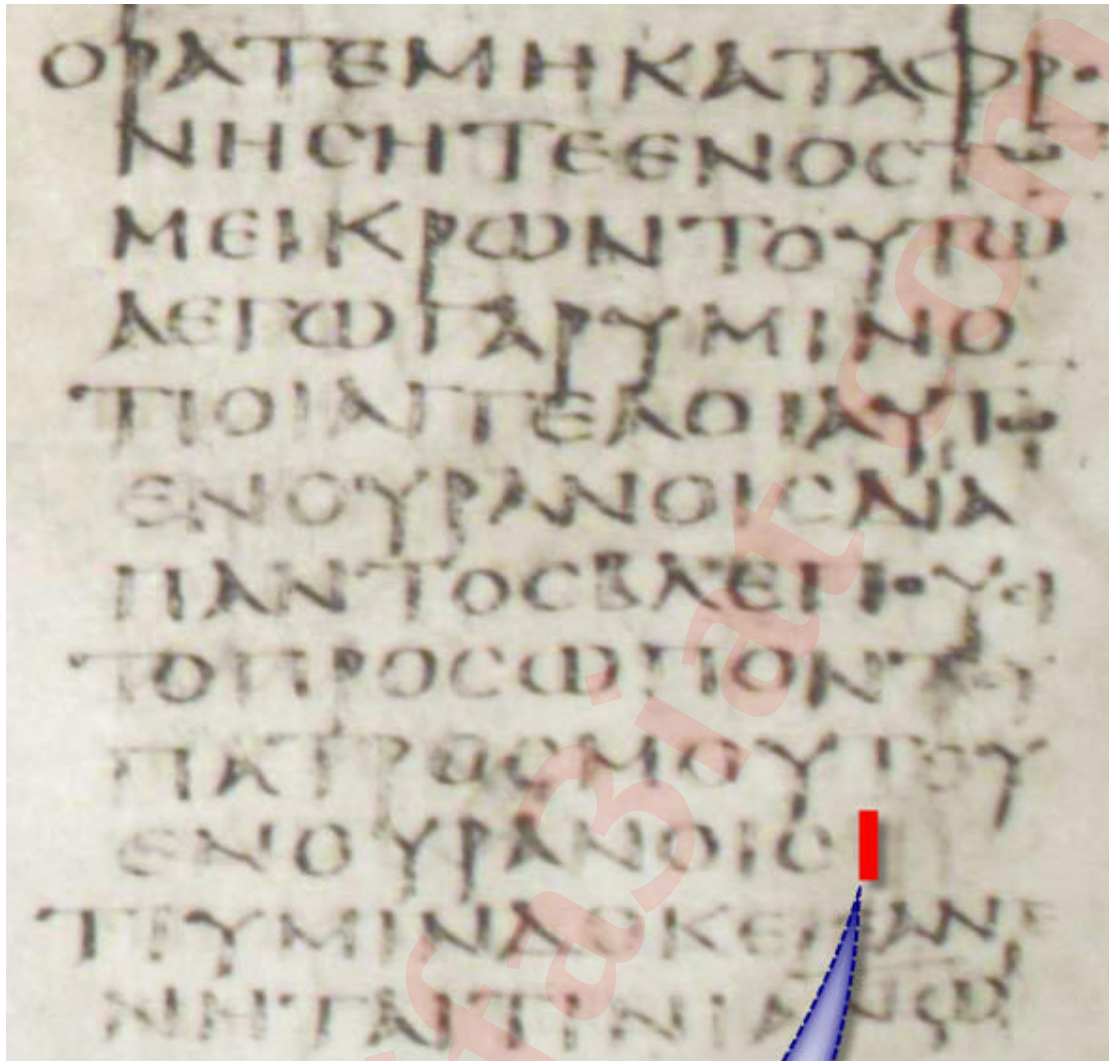 ΟΡΑΤΕΜΗΚΑΤΑΦΡΟ
ΝΗCΗΤΕΕΝΟCΤΩ
ΜΕΙΚΡΩΝΤΟΥΤΩ
ΛΕΓΩΓΑΡΥΜΙΝΟ
ΤΙΟΙΑΓΓΕΛΟΙΑΥΤΩ
ΕΝΟΥΡΑΝΟΙCΔΙΑ
ΠΑΝΤΟCΒΛΕΠΟΥCΙ
ΤΟΠΡΟCΩΠΟΝΤΟΥ
ΠΑΤΡΟCΜΟΥΤΟΥ
ΕΝΟΥΡΑΝΟΙC
ΤΙΥΜΙΝΔΟΚΕΙΕΑΝΓΕ
ΝΗΤΑΙΤΙΝΙΑΝΘΩ